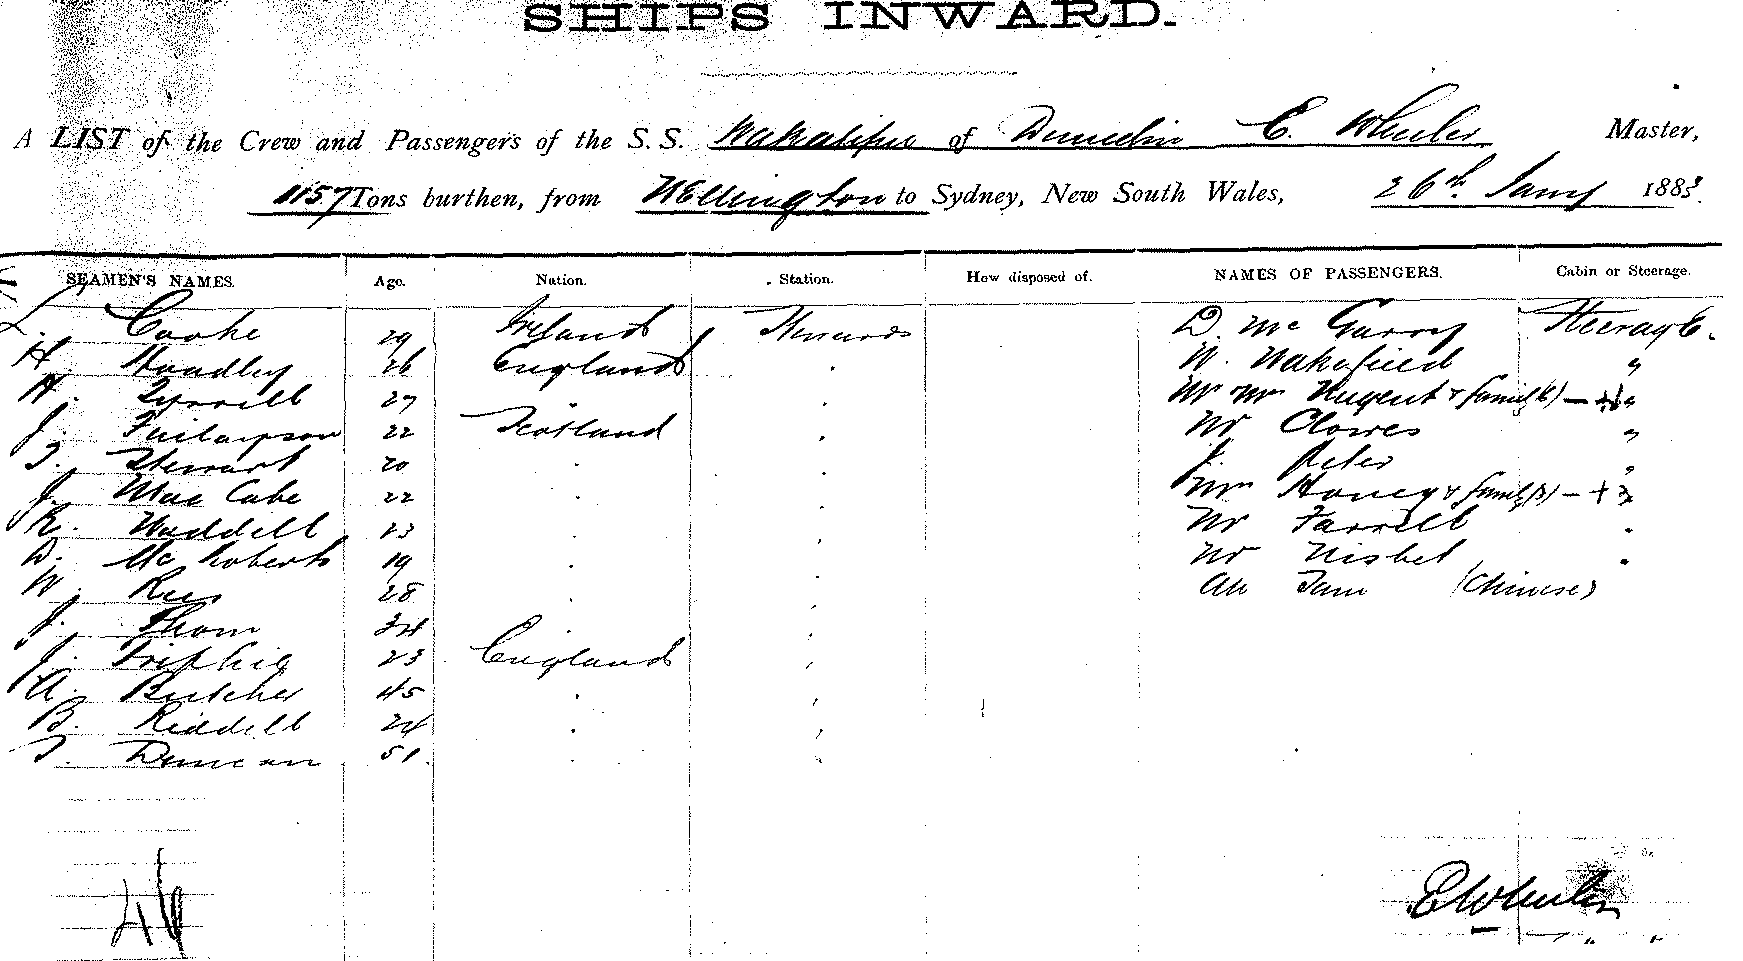 SHIPS INWARD.
A LIST of the Crew and Passengers of the S.S. Wakatipu of Dunedin E. Wheeler Master,
1157 Tons burthen, from Wellington to Sydney, New South Wales, 26th Jany 1883.
SEAMEN'S NAMES. Age. Nation. Station. How disposed of. NAMES OF PASSENGERS. Cabin or Steerage.
L. Cooke 29 Ireland Steward D. Mc Garry Steerage.
H. Handley 26 England W. Wakefield "
H. Tyrrell 27 Mr Mrs Nugent & family (6) "
J. Finlayson 22 Scotland Mr Clowes "
T. Stewart 20 J. Peter "
J. Mac Cabe 22 Mrs Honey & family (3) "
R. Waddell 23 Mr Farrell "
D. Mc Roberts 19 Mr Nisbet "
W. Rees 28 Ah (Chinese)
J. Thom 34
J. 23 England
A. Butcher 45
B. Riddell 24
T. Duncan 51
46
E Wheeler